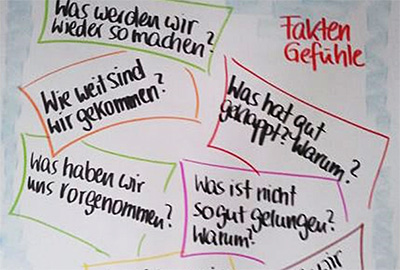 Was werden wir
wieder so machen?
Fakten
Gefühle
Wie weit sind
wir gekommen?
Was hat gut
geklappt? Warum?
Was haben wir
uns vorgenommen?
Was ist nicht
so gut gelungen?
Warum?
wir